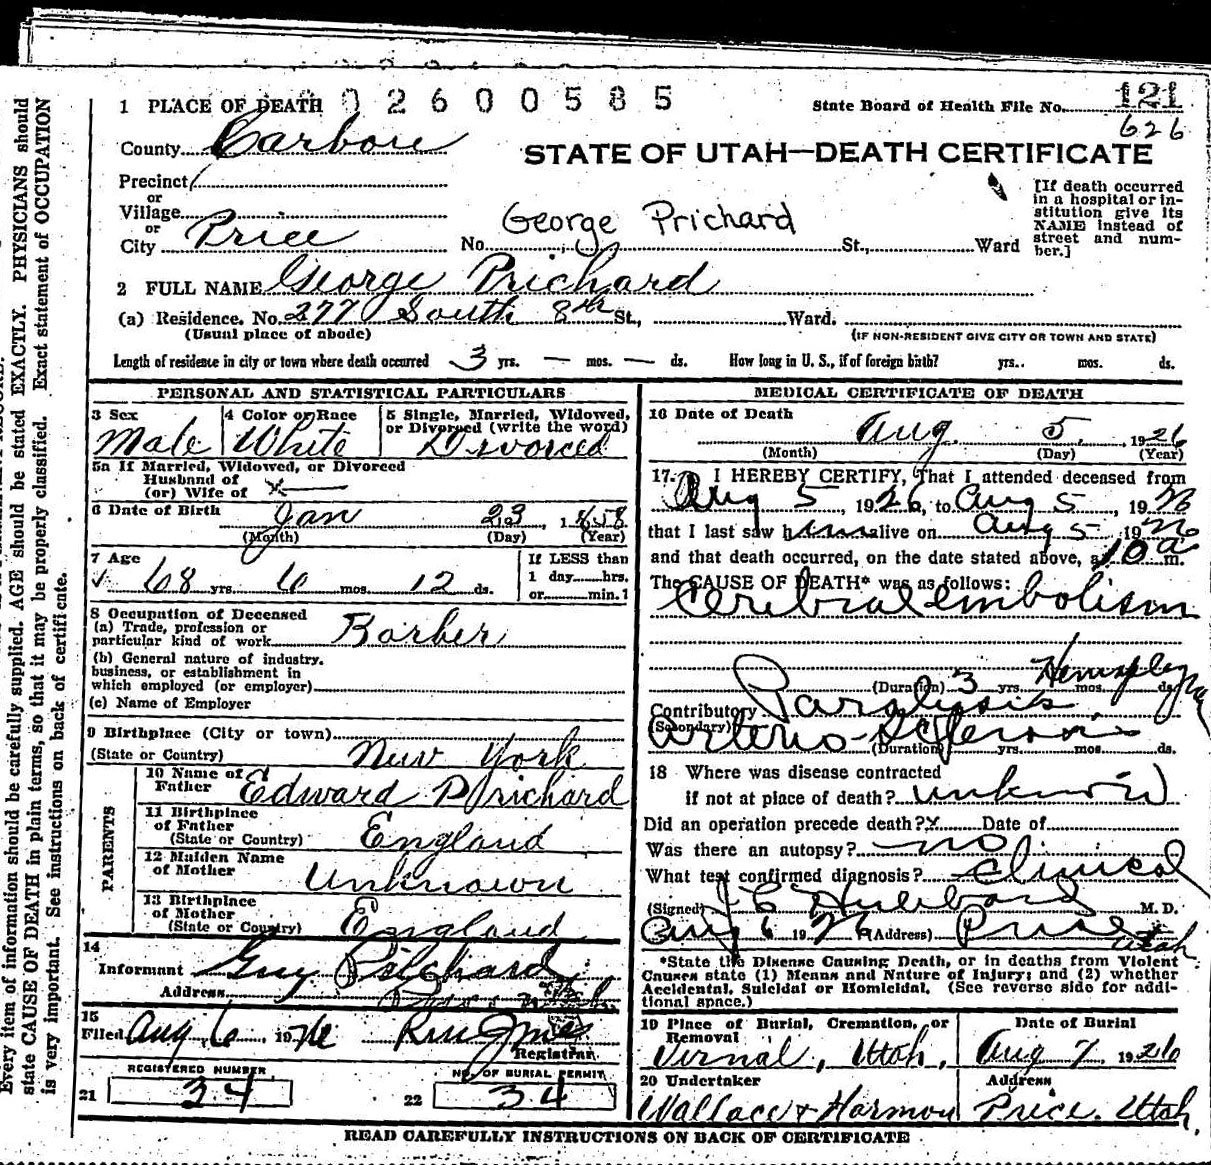 1 PLACE OF DEATH 02600585
State Board of Health File No. 121
626
County Carbon
STATE OF UTAH—DEATH CERTIFICATE
Precinct
or
Village
or
City Price
No. George Prichard St., Ward
[If death occurred
in a hospital or in-
stitution give its
NAME instead of
street and num-
ber.]
2 FULL NAME George Prichard
(a) Residence. No. 277 South 8th St., Ward.
(Usual place of abode)
(IF NON-RESIDENT GIVE CITY OR TOWN AND STATE)
Length of residence in city or town where death occurred 3 yrs. — mos. — ds. How long in U. S., if of foreign birth? yrs. mos. ds.
PERSONAL AND STATISTICAL PARTICULARS
3 Sex
Male
4 Color or Race
White
5 Single, Married, Widowed,
or Divorced (write the word)
Divorced
5a If Married, Widowed, or Divorced
Husband of
(or) Wife of x
6 Date of Birth Jan 23, 1858
(Month) (Day) (Year)
7 Age
68 yrs. 6 mos. 12 ds.
If LESS than
1 day hrs.
or min.
8 Occupation of Deceased
(a) Trade, profession or
particular kind of work Barber
(b) General nature of industry.
business, or establishment in
which employed (or employer)
(c) Name of Employer
9 Birthplace (City or town)
(State or Country) New York
PARENTS
10 Name of
Father Edward Prichard
11 Birthplace
of Father
(State or Country) England
12 Maiden Name
of Mother Unknown
13 Birthplace
of Mother
(State or Country) England
14
Informant Guy Prichard
Address
15
Filed Aug 6 1926
Registrar.
REGISTERED NUMBER
21 34
NO. OF BURIAL PERMIT
22 34
MEDICAL CERTIFICATE OF DEATH
16 Date of Death
Aug. 5, 1926
(Month) (Day) (Year)
17. I HEREBY CERTIFY, That I attended deceased from
Aug 5, 1926, to Aug 5, 1926
that I last saw him alive on Aug 5 1926
and that death occurred, on the date stated above, at 10 a m.
The CAUSE OF DEATH* was as follows:
Cerebral embolism
(Duration) 3 yrs. mos. ds.
Contributory Paralysis
(Secondary)
Arterio-Sclerosis
(Duration) yrs. mos. ds.
18 Where was disease contracted
if not at place of death? unknown
Did an operation precede death? x Date of
Was there an autopsy? no
What test confirmed diagnosis? Clinical
(Signed) J C Hubbard M. D.
Aug 6 1926 (Address) Price Utah
*State the Disease Causing Death, or in deaths from Violent
Causes state (1) Means and Nature of Injury; and (2) whether
Accidental, Suicidal or Homicidal. (See reverse side for addi-
tional space.)
19 Place of Burial, Cremation, or
Removal
Vernal, Utah.
Date of Burial
Aug 7. 1926
20 Undertaker
Wallace & Harmon
Address
Price. Utah.
READ CAREFULLY INSTRUCTIONS ON BACK OF CERTIFICATE
Every item of information should be carefully supplied. AGE should be stated EXACTLY. PHYSICIANS should
state CAUSE OF DEATH in plain terms, so that it may be properly classified. Exact statement of OCCUPATION
is very important. See instructions on back of certificate.